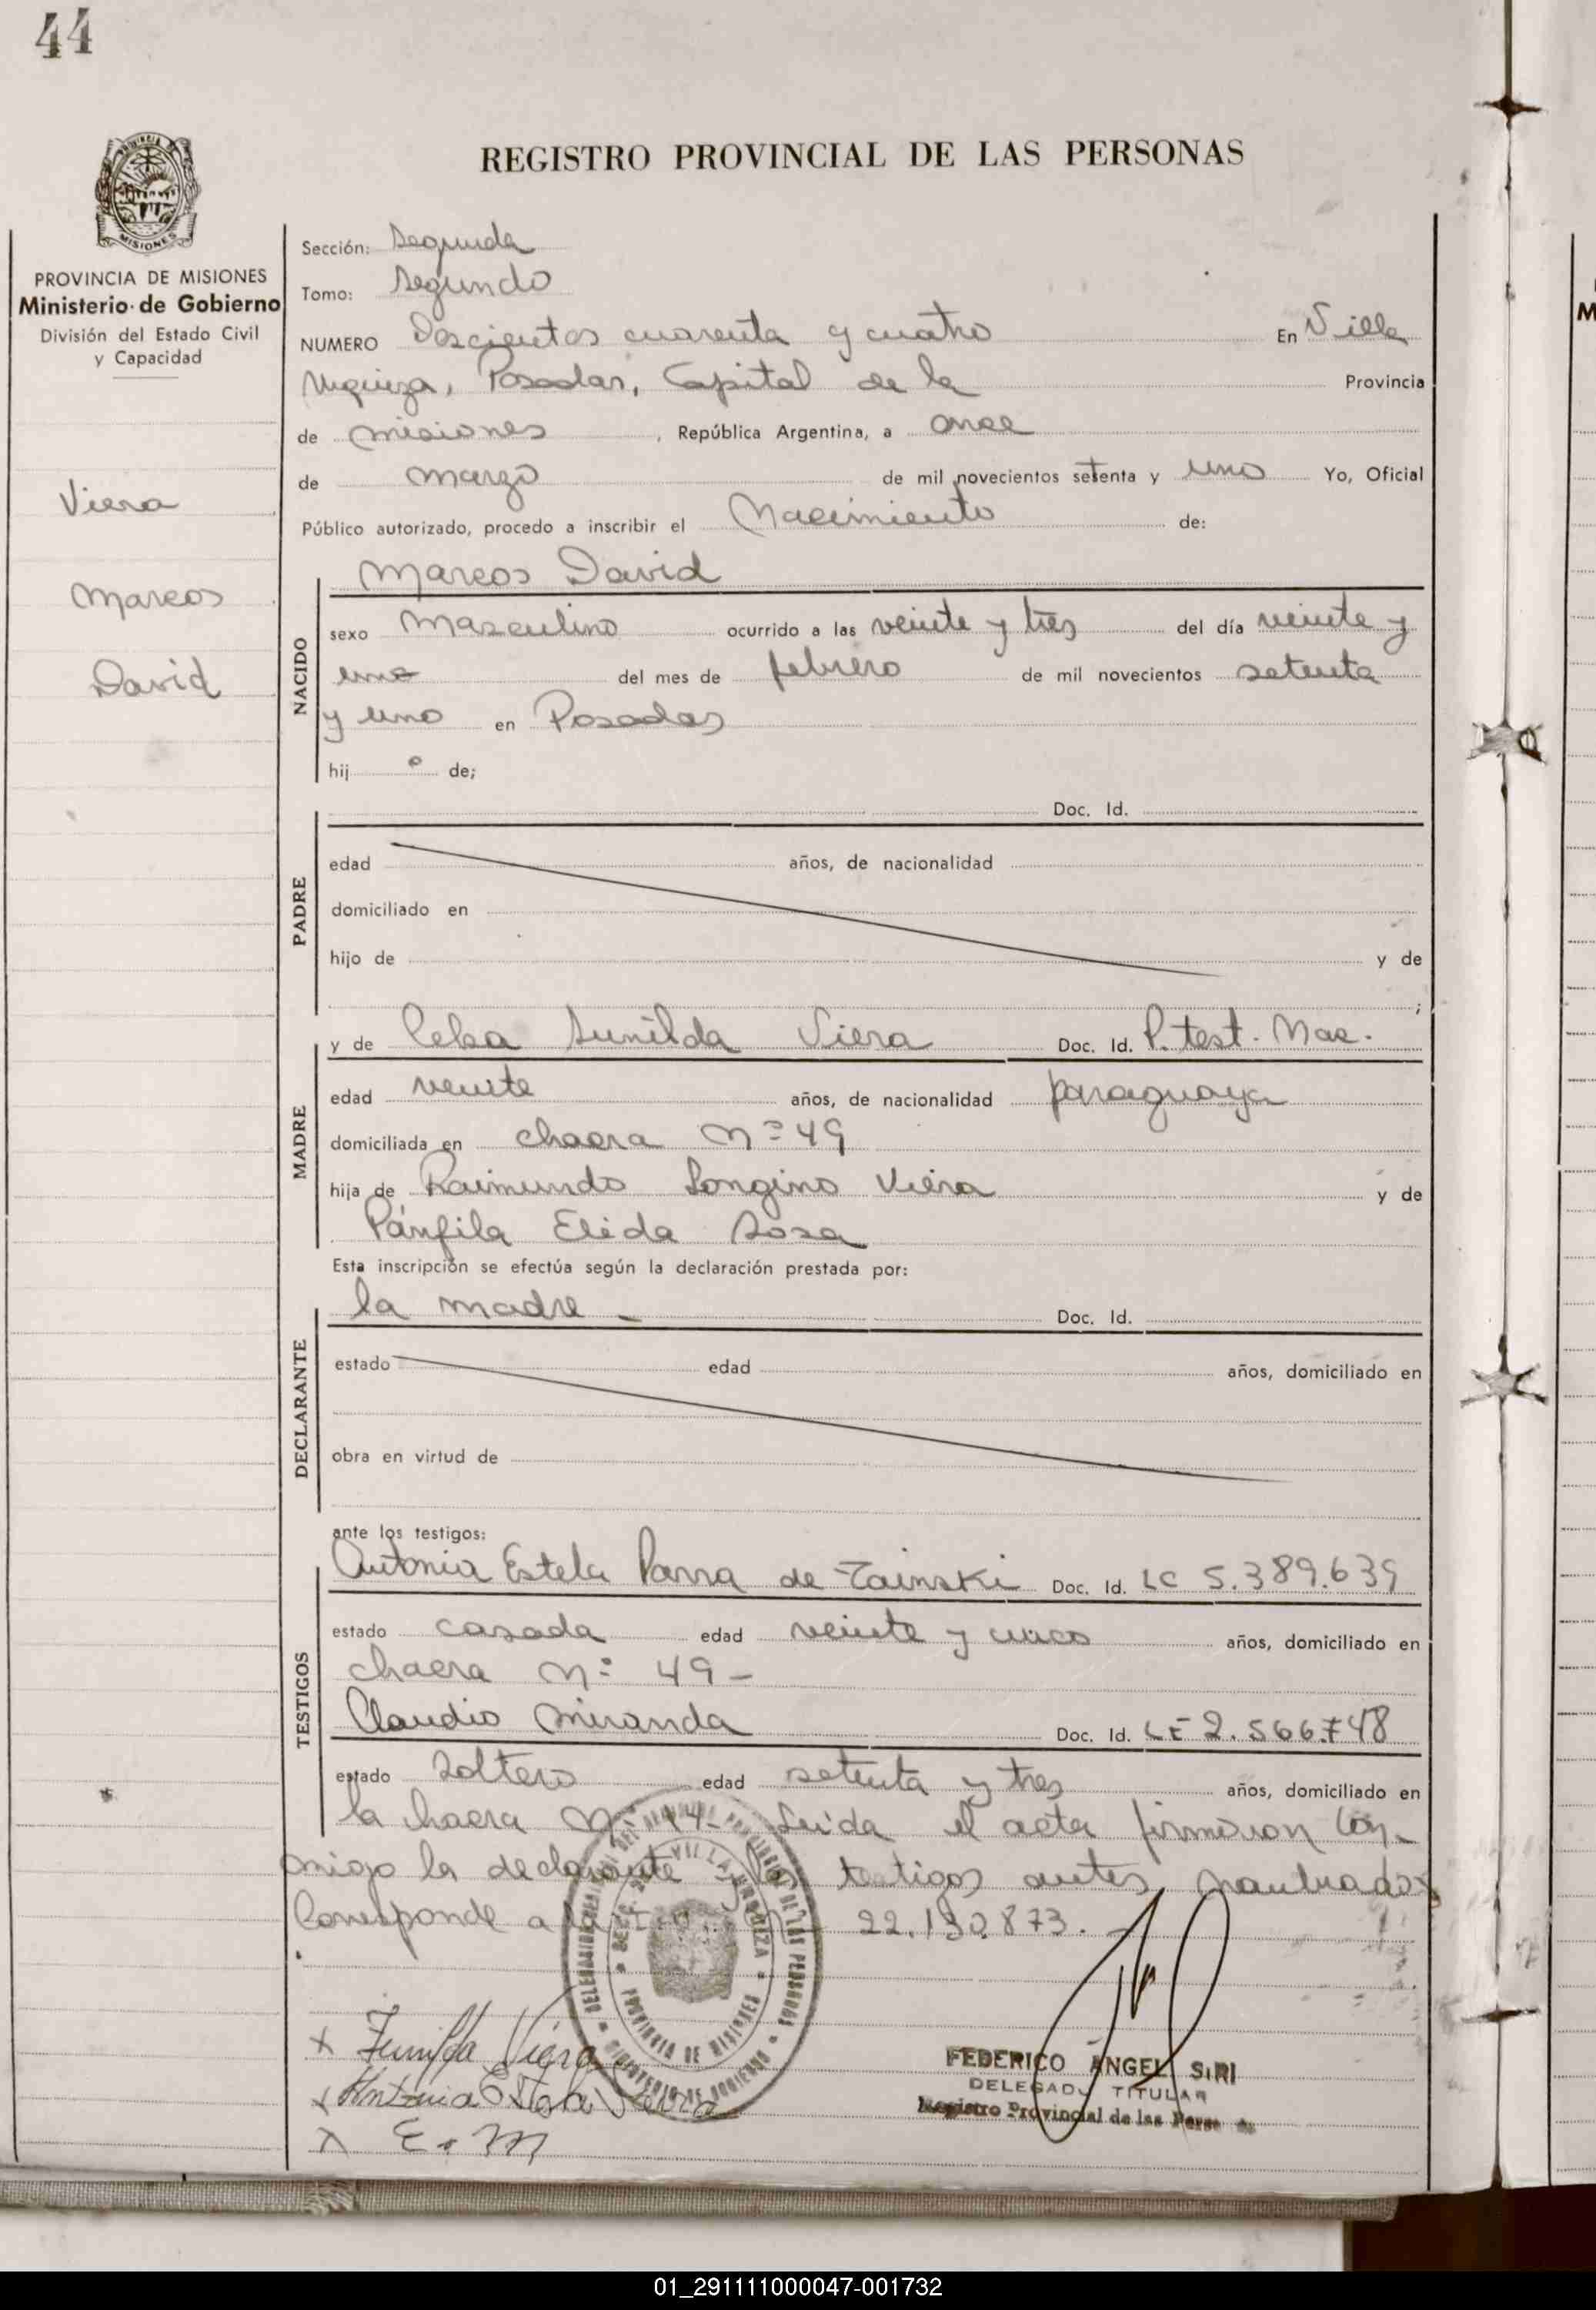 44
PROVINCIA DE MISIONES
Ministerio de Gobierno
División del Estado Civil
y Capacidad
Viera
Marcos
David
REGISTRO PROVINCIAL DE LAS PERSONAS
Sección: Segunda
Tomo: Segundo
NUMERO Doscientos cuarenta y cuatro En Villa
Urquiza, Posadas, Capital de la Provincia
de Misiones, República Argentina, a once
de Marzo de mil novecientos setenta y uno Yo, Oficial
Público autorizado, procedo a inscribir el Nacimiento de:
NACIDO
Marcos David
sexo Masculino ocurrido a las veinte y tres del día veinte y
uno del mes de febrero de mil novecientos setenta
y uno en Posadas
hijo de;
PADRE
Doc. Id.
edad años, de nacionalidad
domiciliado en
hijo de y de
;
MADRE
y de Sunilda Viera Doc. Id. P. test. Nac.
edad veinte años, de nacionalidad paraguaya
domiciliada en chacra Nº 49
hija de Raimundo Longino Viera y de
Pánfila Elida Sosa
Esta inscripción se efectúa según la declaración prestada por:
DECLARANTE
la madre - Doc. Id.
estado edad años, domiciliado en
obra en virtud de
ante los testigos:
TESTIGOS
Antonia Estela Parra de Zainski Doc. Id. LC 5.389.639
estado casada edad veinte y cinco años, domiciliado en
chacra Nº 49-
Claudio Miranda Doc. Id. LE 2.566.748
estado Soltero edad setenta y tres años, domiciliado en
la chacra Nº 14- Leida el acta firmaron con-
migo la declarante y los testigos antes nombrados
Corresponde a 22.130.873.
VILLA URQUIZA
PROVINCIA DE MISIONES
x Zunilda Viera
x Antonia Estela
x E. M
FEDERICO ANGEL SIRI
DELEGADO TITULAR
Registro Provincial de las Personas
01_291111000047-001732